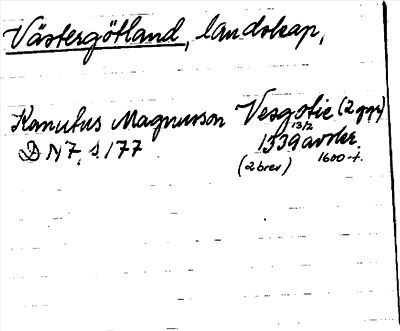 Västergötland, landskap,
Kanutus Magnusson Vesgotie (2 ggr)
13/2
D N 7, s. 177 1539 avskr.
(2 brev) 1600-t.